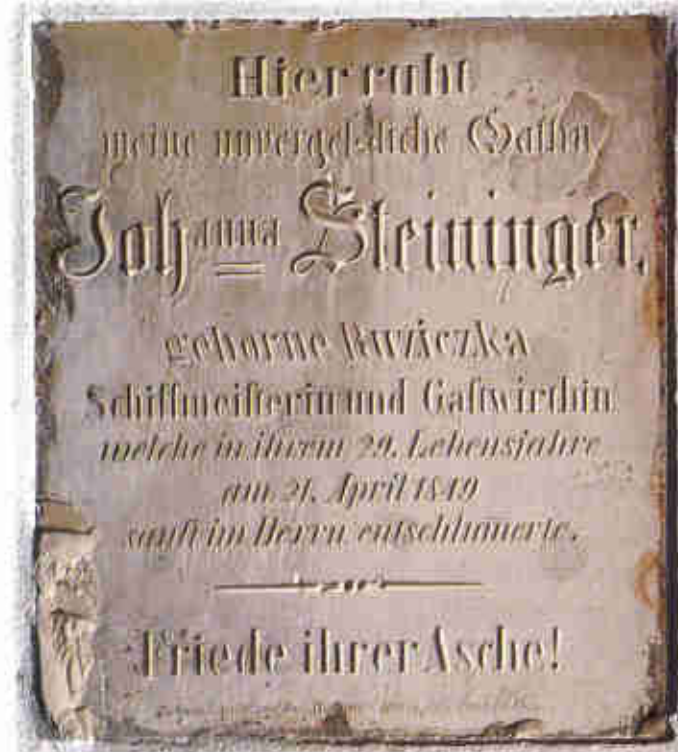 Hier ruht
meine unvergeßliche Gattin
Johanna Steininger,
geborne
Schiffmeisterin und Gastwirthin
welche in ihrem 29. Lebensjahre
am 21. April 1849
sanft im Herrn entschlumerte.
Friede ihrer Asche!